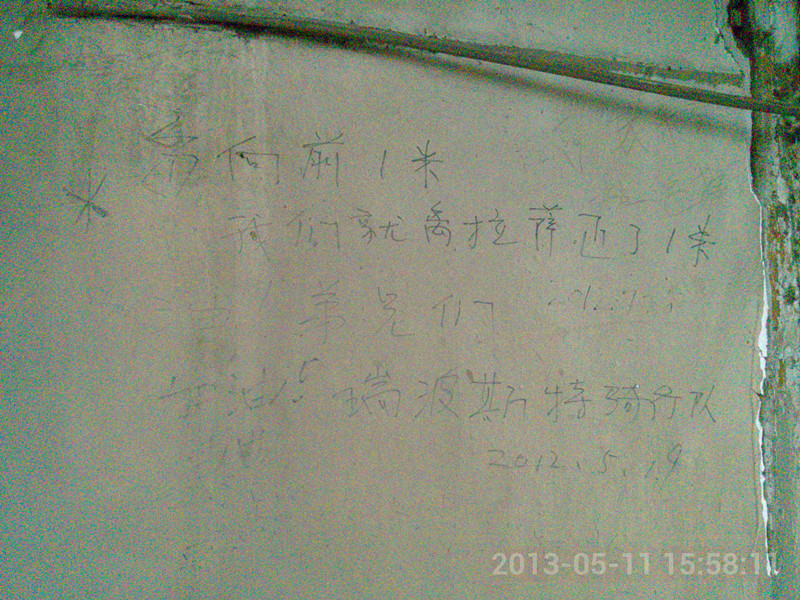 每向前1米
我们就离拉萨近了1米
弟兄们
加油 瑞波斯特骑行队
2012.5.19
2013-05-11 15:58:11